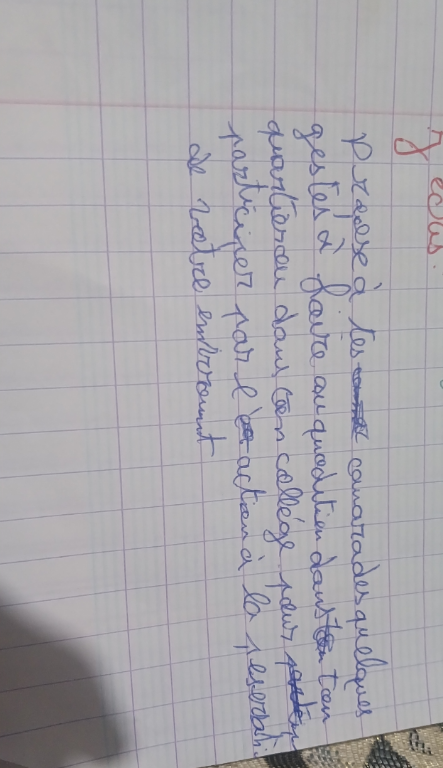 J'écris.
Propose à tes camarades quelques
gestes à faire au quoditien dans ton
quartier ou dans ton collége pour
participer par l'action à la préservati.
de notre environment